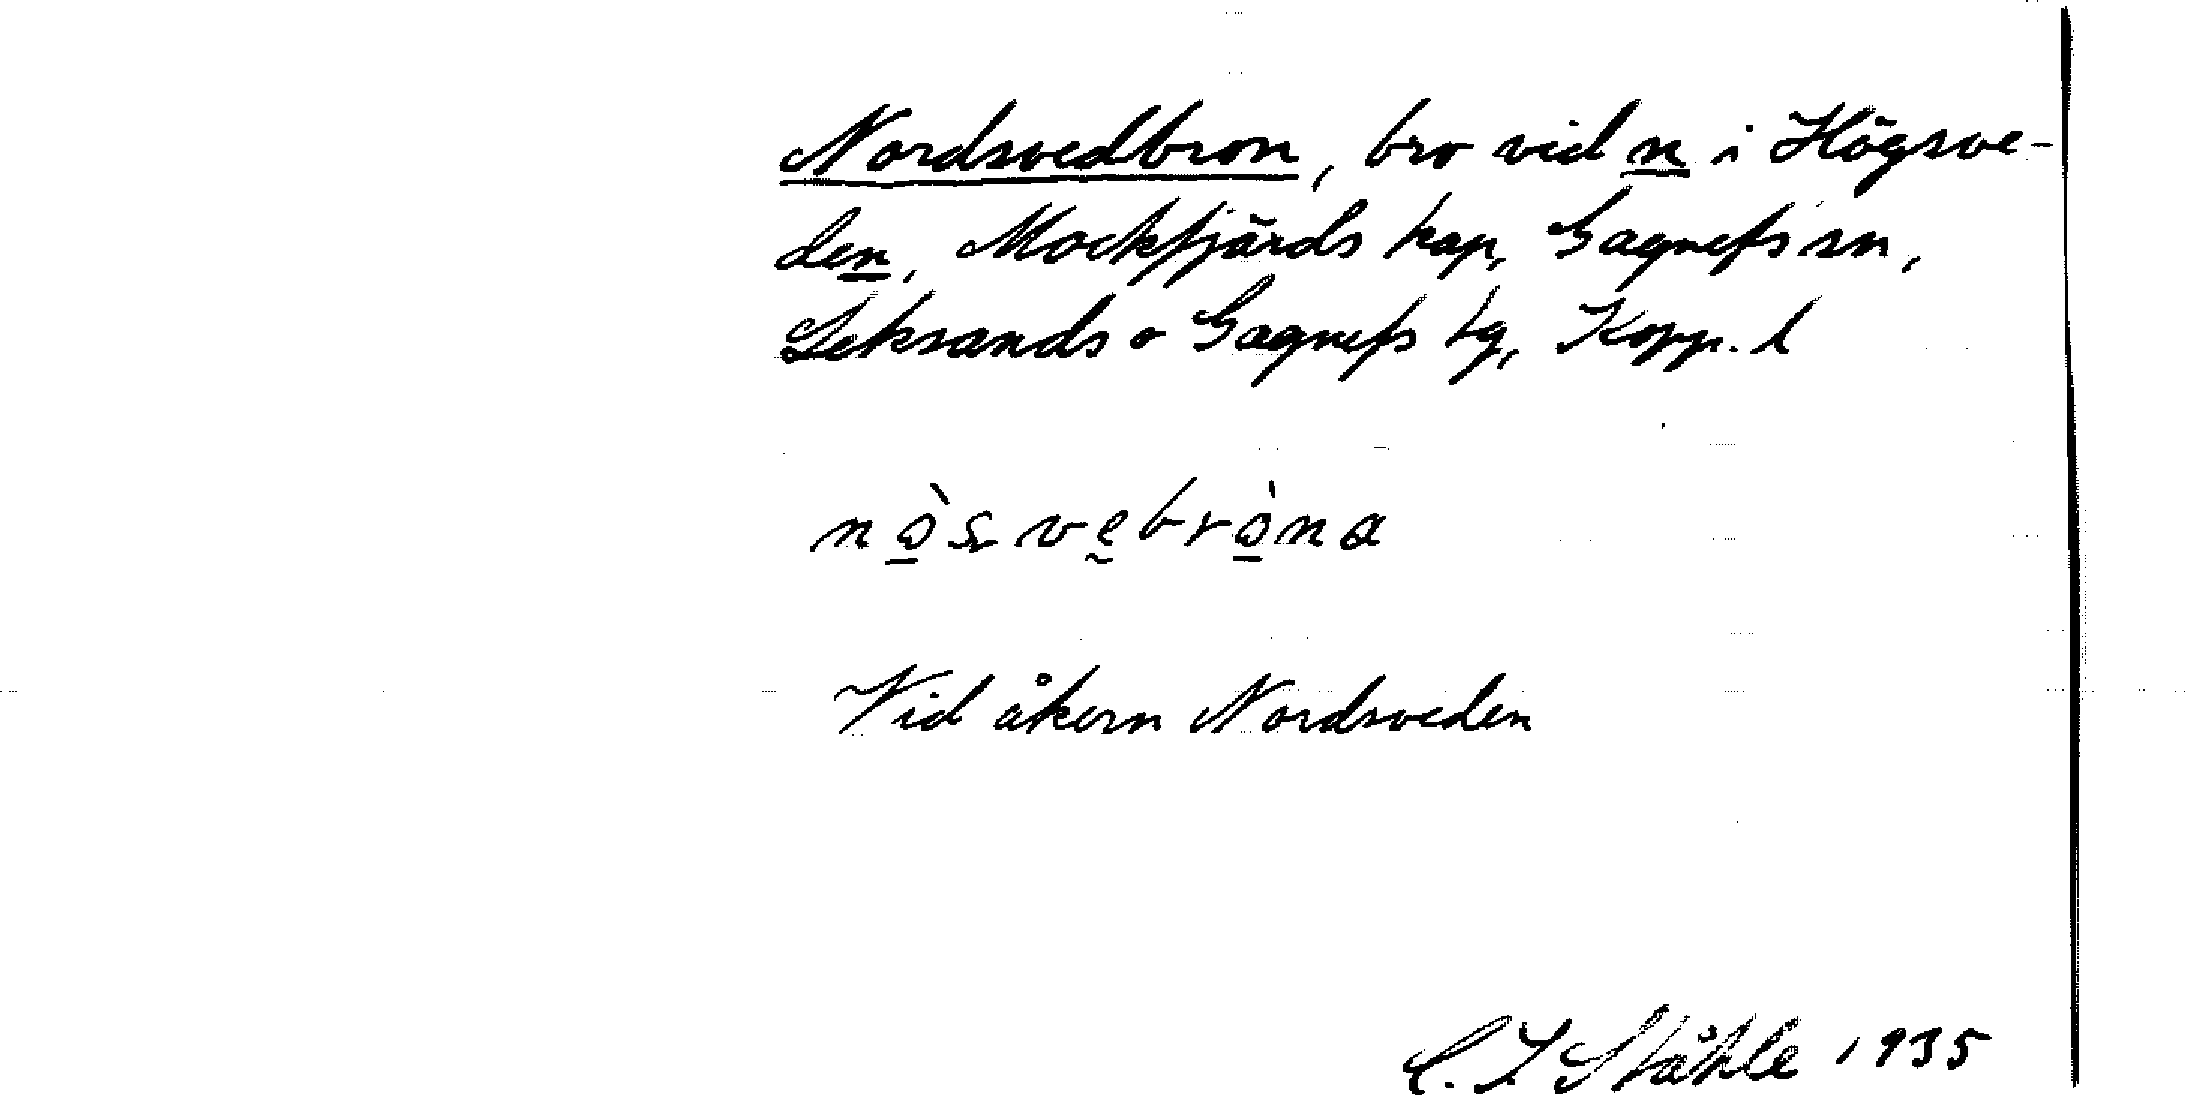 Nordsvedbron, bro vid n i Högsve-
den, Mockfjärds kap, Gagnefs sn,
Leksands o Gagnefs tg, Kopp. l
nò̱sve̱brò̱na
Vid åkern Nordsveden
C. I Ståhle 1935